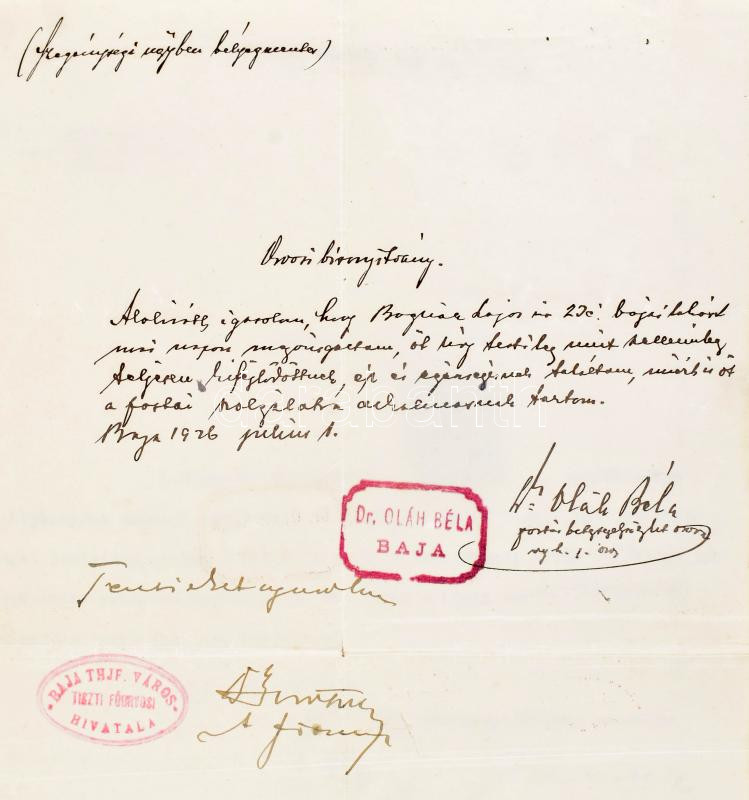 (Szegénységi ügyben bélyegmentes)
Orvosi bizonyítvány.
Alulírott igazolom, hogy Lajos 23 é. bajai lakost
mai napon megvizsgáltam, őt úgy testileg mint szellemileg
teljesen kifejlődöttnek, ép és egészségesnek találtam, miért is őt
a postai szolgálatra alkalmasnak tartom.
Baja 1926 július 1.
Dr. Oláh Béla
postai
Dr. OLÁH BÉLA
BAJA
Fenti
BAJA THJF. VÁROS
TISZTI FŐORVOSI
HIVATALA
darabanth